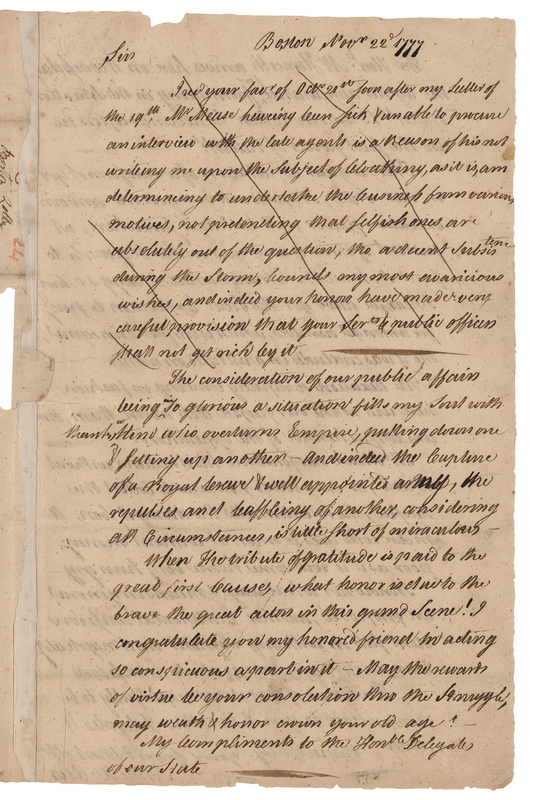 Boston Novr 22d 1777
Sir
I recd your favr of Octr 21st soon after my Letter of
the 19th Mr Mease haveing been sick & unable to procure
an interview with the late agents is a Reason of his not
writeing me upon the Subject of Cloathing, as it is, am
determining to undertake the business from various
motives, not pretending that selfish ones are
absolutely out of the question, tho a decent Subsistence
during the Storm, bounds my most avaricious
wishes, and indeed your honors have made very
careful provision that your Servts & public officers
shall not get rich by it
The consideration of our public affairs
being in so glorious a situation fills my Soul with
thanks to him who overturns Empire, pulling down one
& setting up another - and indeed the Capture
of a Royal brave & well appointed army, the
repulses and baffleing of another, considering
all Circumstances, is little short of miraculous -
When the tribute of gratitude is paid to the
great first Cause, what honor is due to the
brave the great actors in this grand Scene! I
congratulate you my honored friend in acting
so conspicuous a part in it - May the rewards
of virtue be your consolation thro the Struggle,
may wealth & honor crown your old age -
My Compliments to the Honble Delegates
of our State